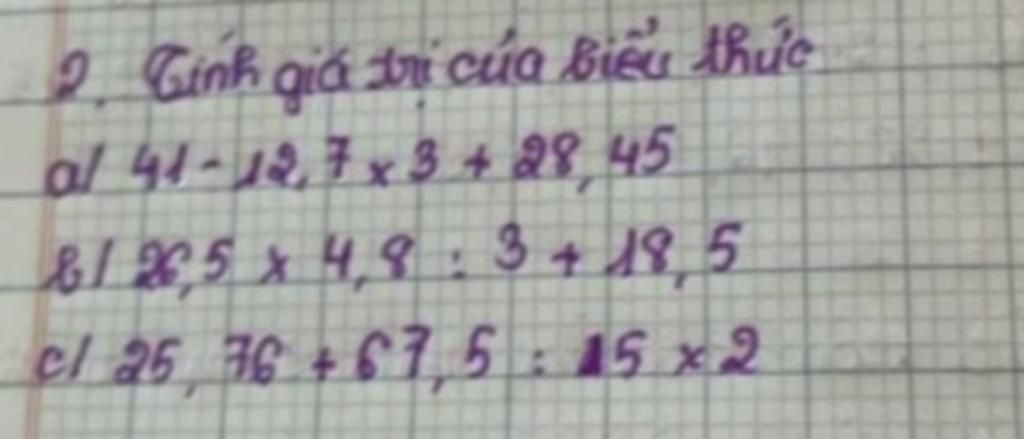 2. Tính giá trị của biểu thức
a/ 41 - 12,7 x 3 + 28,45
b/ 26,5 x 4,8 : 3 + 18,5
c/ 25,76 + 67,5 : 15 x 2